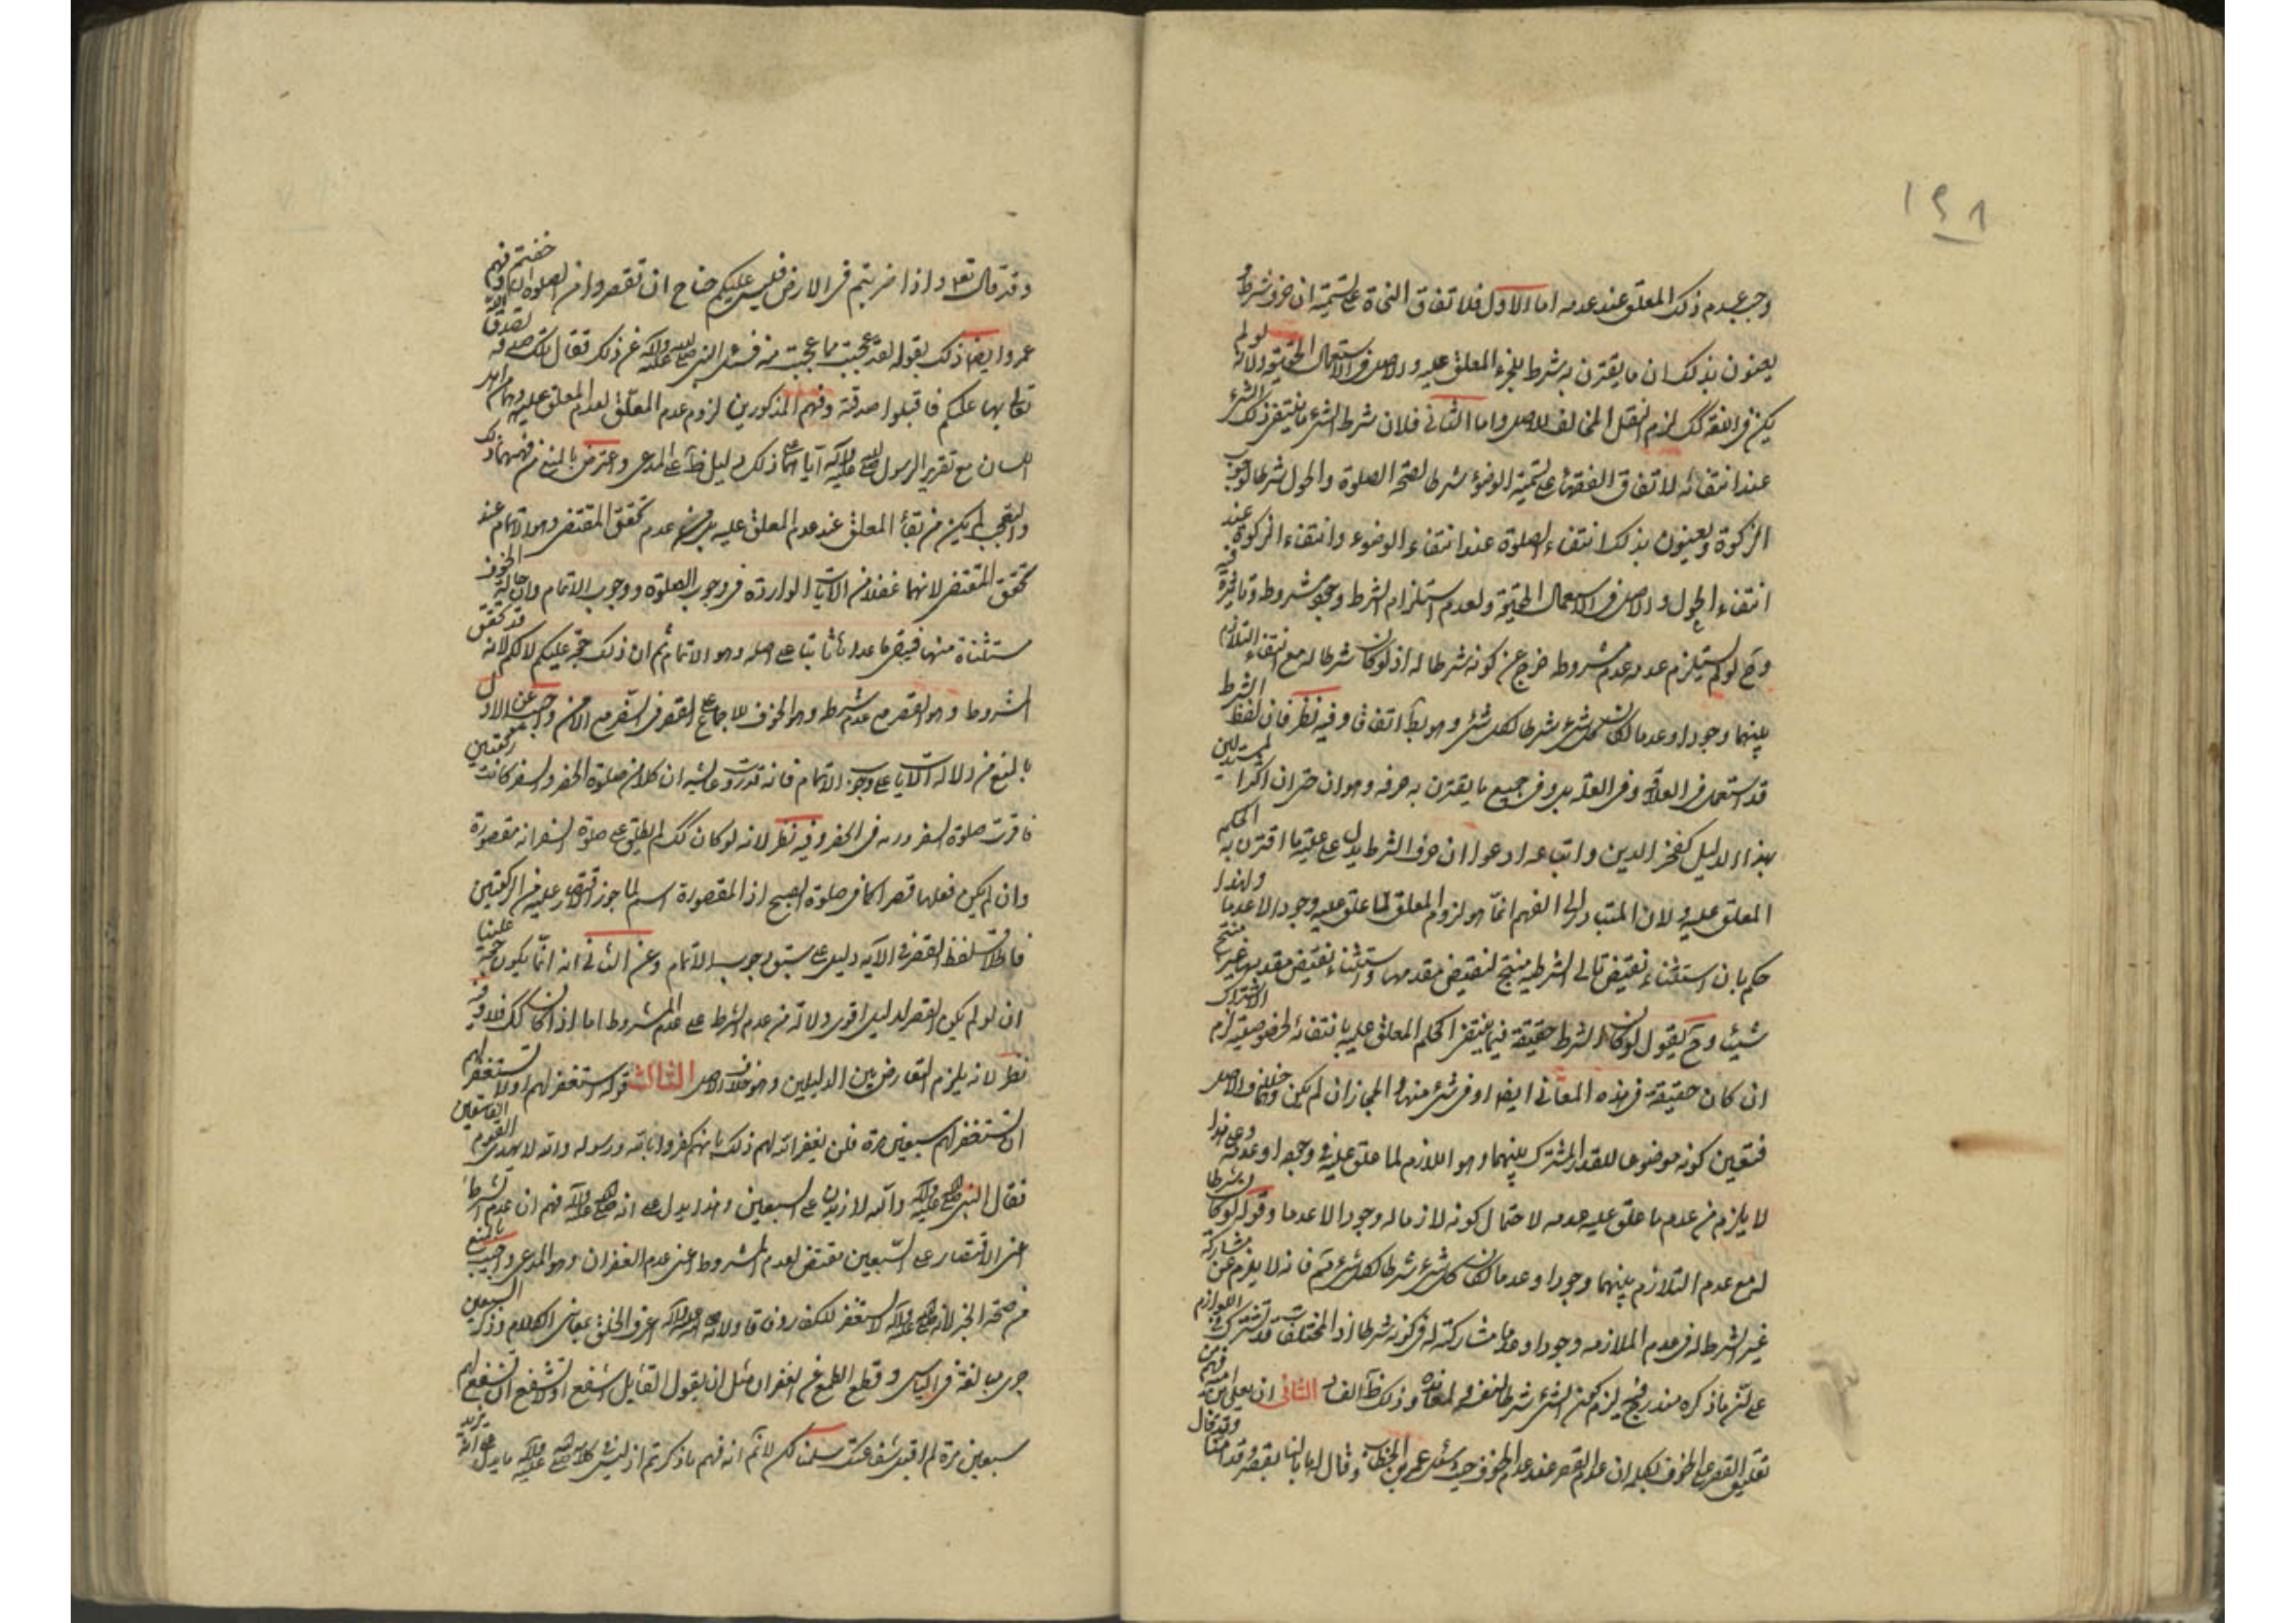 ١٩٨
وجب عدم ذلك المعلق عند عدمه اما الاول فلاتفاق النحاة على تسمية ان حرف شرط و
يعنون بذلك ان ما يقترن به شرط للجزء المعلق عليه والاصل في الاستعمال الحقيقة ولانه لو لم
يكن في اللغة كك لزم النقل المخالف للاصل واما الثاني فلان شرط الشئ ما ينتفي ذلك الشئ
عند انتفائه لاتفاق الفقهاء على تسمية الوضوء شرطا لصحة الصلوة والحول شرطا لوجوب
الزكوة ويعنون بذلك انتفاء الصلوة عند انتفاء الوضوء وانتفاء الزكوة عند
انتفاء الحول والاصل في الاستعمال الحقيقة ولعدم استلزام الشرط وجود مشروطه
وح لو لم يستلزم عدمه عدم مشروطه خرج عن كونه شرطا له اذ لو كان شرطا له مع انتفاء التلازم
بينهما وجودا وعدما لكان كل شئ شرطا لكل شئ وهو بط اتفاقا وفيه نظر فان لفظ الشرط
قد استعمل في العلامة وفي العلة بل وفي جميع ما يقترن به حرفه وهو ان حتى ان اكثر المستدلين
بهذا الدليل كفخر الدين واتباعه ادعوا ان حرف الشرط يدل على علية ما اقترن به الحكم
المعلق عليه ولان المتبادر الى الفهم انما هو لزوم المعلق لما علق عليه وجودا لا عدما ولهذا
حكم بان استثناء نقيض تالي الشرطية منتج لنقيض مقدمها واستثناء نقيض مقدمها غير منتج
شيئا وح نقول لو كان الشرط حقيقة فيما ينتفي الحكم المعلق عليه بانتفائه لخصوصيته لزم الاشتراك
ان كان حقيقة في هذه المعاني ايضا او في شئ منها والمجاز ان لم يكن وهما خلاف الاصل
فتعين كونه موضوعا للقدر المشترك بينهما وهو اللازم لما علق عليه في وجوده او عدمه وعلى هذا
لا يلزم من عدم ما علق عليه عدمه لاحتمال كونه لازما له وجودا لا عدما وقوله لو كان شرطا
له مع عدم التلازم بينهما وجودا وعدما لكان كل شئ شرطا لكل شئ قلنا فانه لا يلزم من مشاركة
غير الشرط له في عدم الملازمة وجودا وعدما مشاركته له في كونه شرطا اذ المختلفات قد تشترك في اللوازم
على ان ما ذكره يلزم كون الشئ شرطا لنفسه ولمعانده وذلك ظاهر الفساد الثاني ان يعلى بن امية فهم من
تعليق القصر على الخوف بكلمة ان عدم القصر عند عدم الخوف حيث سئل عمر بن الخطاب وقال له ما بالنا نقصر وقد امنا وقد قال
وقد قال تعالى واذا ضربتم في الارض فليس عليكم جناح ان تقصروا من الصلوة ان خفتم وفهم
عمر ايضا ذلك بقوله لقد عجبت مما عجبت منه فسئل النبي صلى الله عليه وآله عن ذلك فقال تلك صدقة تصدق الله
تعالى بها عليكم فاقبلوا صدقته وفهم المذكورين لزوم عدم المعلق لعدم المعلق عليه وهما من اهل
اللسان مع تقرير الرسول صلى الله عليه وآله اياهما على ذلك دليل ظاهر على المدعى واعترض بالمنع من فهمهما ذلك
والتعجب لم يكن من بقاء المعلق عند عدم المعلق عليه بل من عدم تحقق المقتضى وهو الاتمام عند
تحقق المقتضى لانهما غفلا من الآيات الواردة في وجوب الصلوة ووجوب الاتمام وان حالة الخوف
مستثناة منها فيبقى ما عداه ثابتا على اصله وهو الاتمام ثم ان ذلك حجة عليكم لا لكم لانه قد تحقق
المشروط وهو القصر مع عدم شرطه وهو الخوف للاجماع على القصر في السفر مع الامن واجيب عن الاول
بالمنع من دلالة الآيات على وجوب الاتمام فانه قد روت عائشة ان كلا من صلوة الحضر والسفر كانت ركعتين
فاقرت صلوة السفر وزيد في الحضر وفيه نظر لانه لو كان كك لم يطلق على صلوة السفر انه مقصورة
وان لم يكن فعلها قصرا كما في صلوة الصبح اذ المقصورة اسم لما جوز الاقتصار عليه من الركعتين
فاطلاق لفظ القصر في الآية دليل على سبق وجوب الاتمام وعن الثاني انه انما يكون حجة علينا
ان لو لم يكن القصر لدليل اقوى دلالة من عدم الشرط على عدم المشروط اما اذا كان كك فلا وفيه
نظر لانه يلزم التعارض بين الدليلين وهو خلاف الاصل الثالث قوله استغفر لهم اولا تستغفر لهم
ان تستغفر لهم سبعين مرة فلن يغفر الله لهم ذلك بانهم كفروا بالله ورسوله والله لا يهدي القوم الفاسقين
فقال النبي صلى الله عليه وآله والله لازيدن على السبعين وهذا يدل على انه صلى الله عليه وآله فهم ان عدم الشرط
اعنى الاقتصار على السبعين مقتض لعدم المشروط اعنى عدم الغفران وهو المدعى واجيب بالمنع
من صحة الخبر لانه صلى الله عليه وآله لا يستغفر للكفار وفاقا ولانه صلى الله عليه وآله اعرف الخلق بمعاني الكلام وذكر السبعين
جرى مبالغة في اليأس وقطع الطمع عن الغفران مثل ان يقول القائل اشفع او لا تشفع ان تشفع لهم
سبعين مرة لم اقبل شفاعتك سلمنا لكن لا نم انه فهم ما ذكرتم اذ ليس في كلامه صلى الله عليه وآله ما يدل على انه يزيد